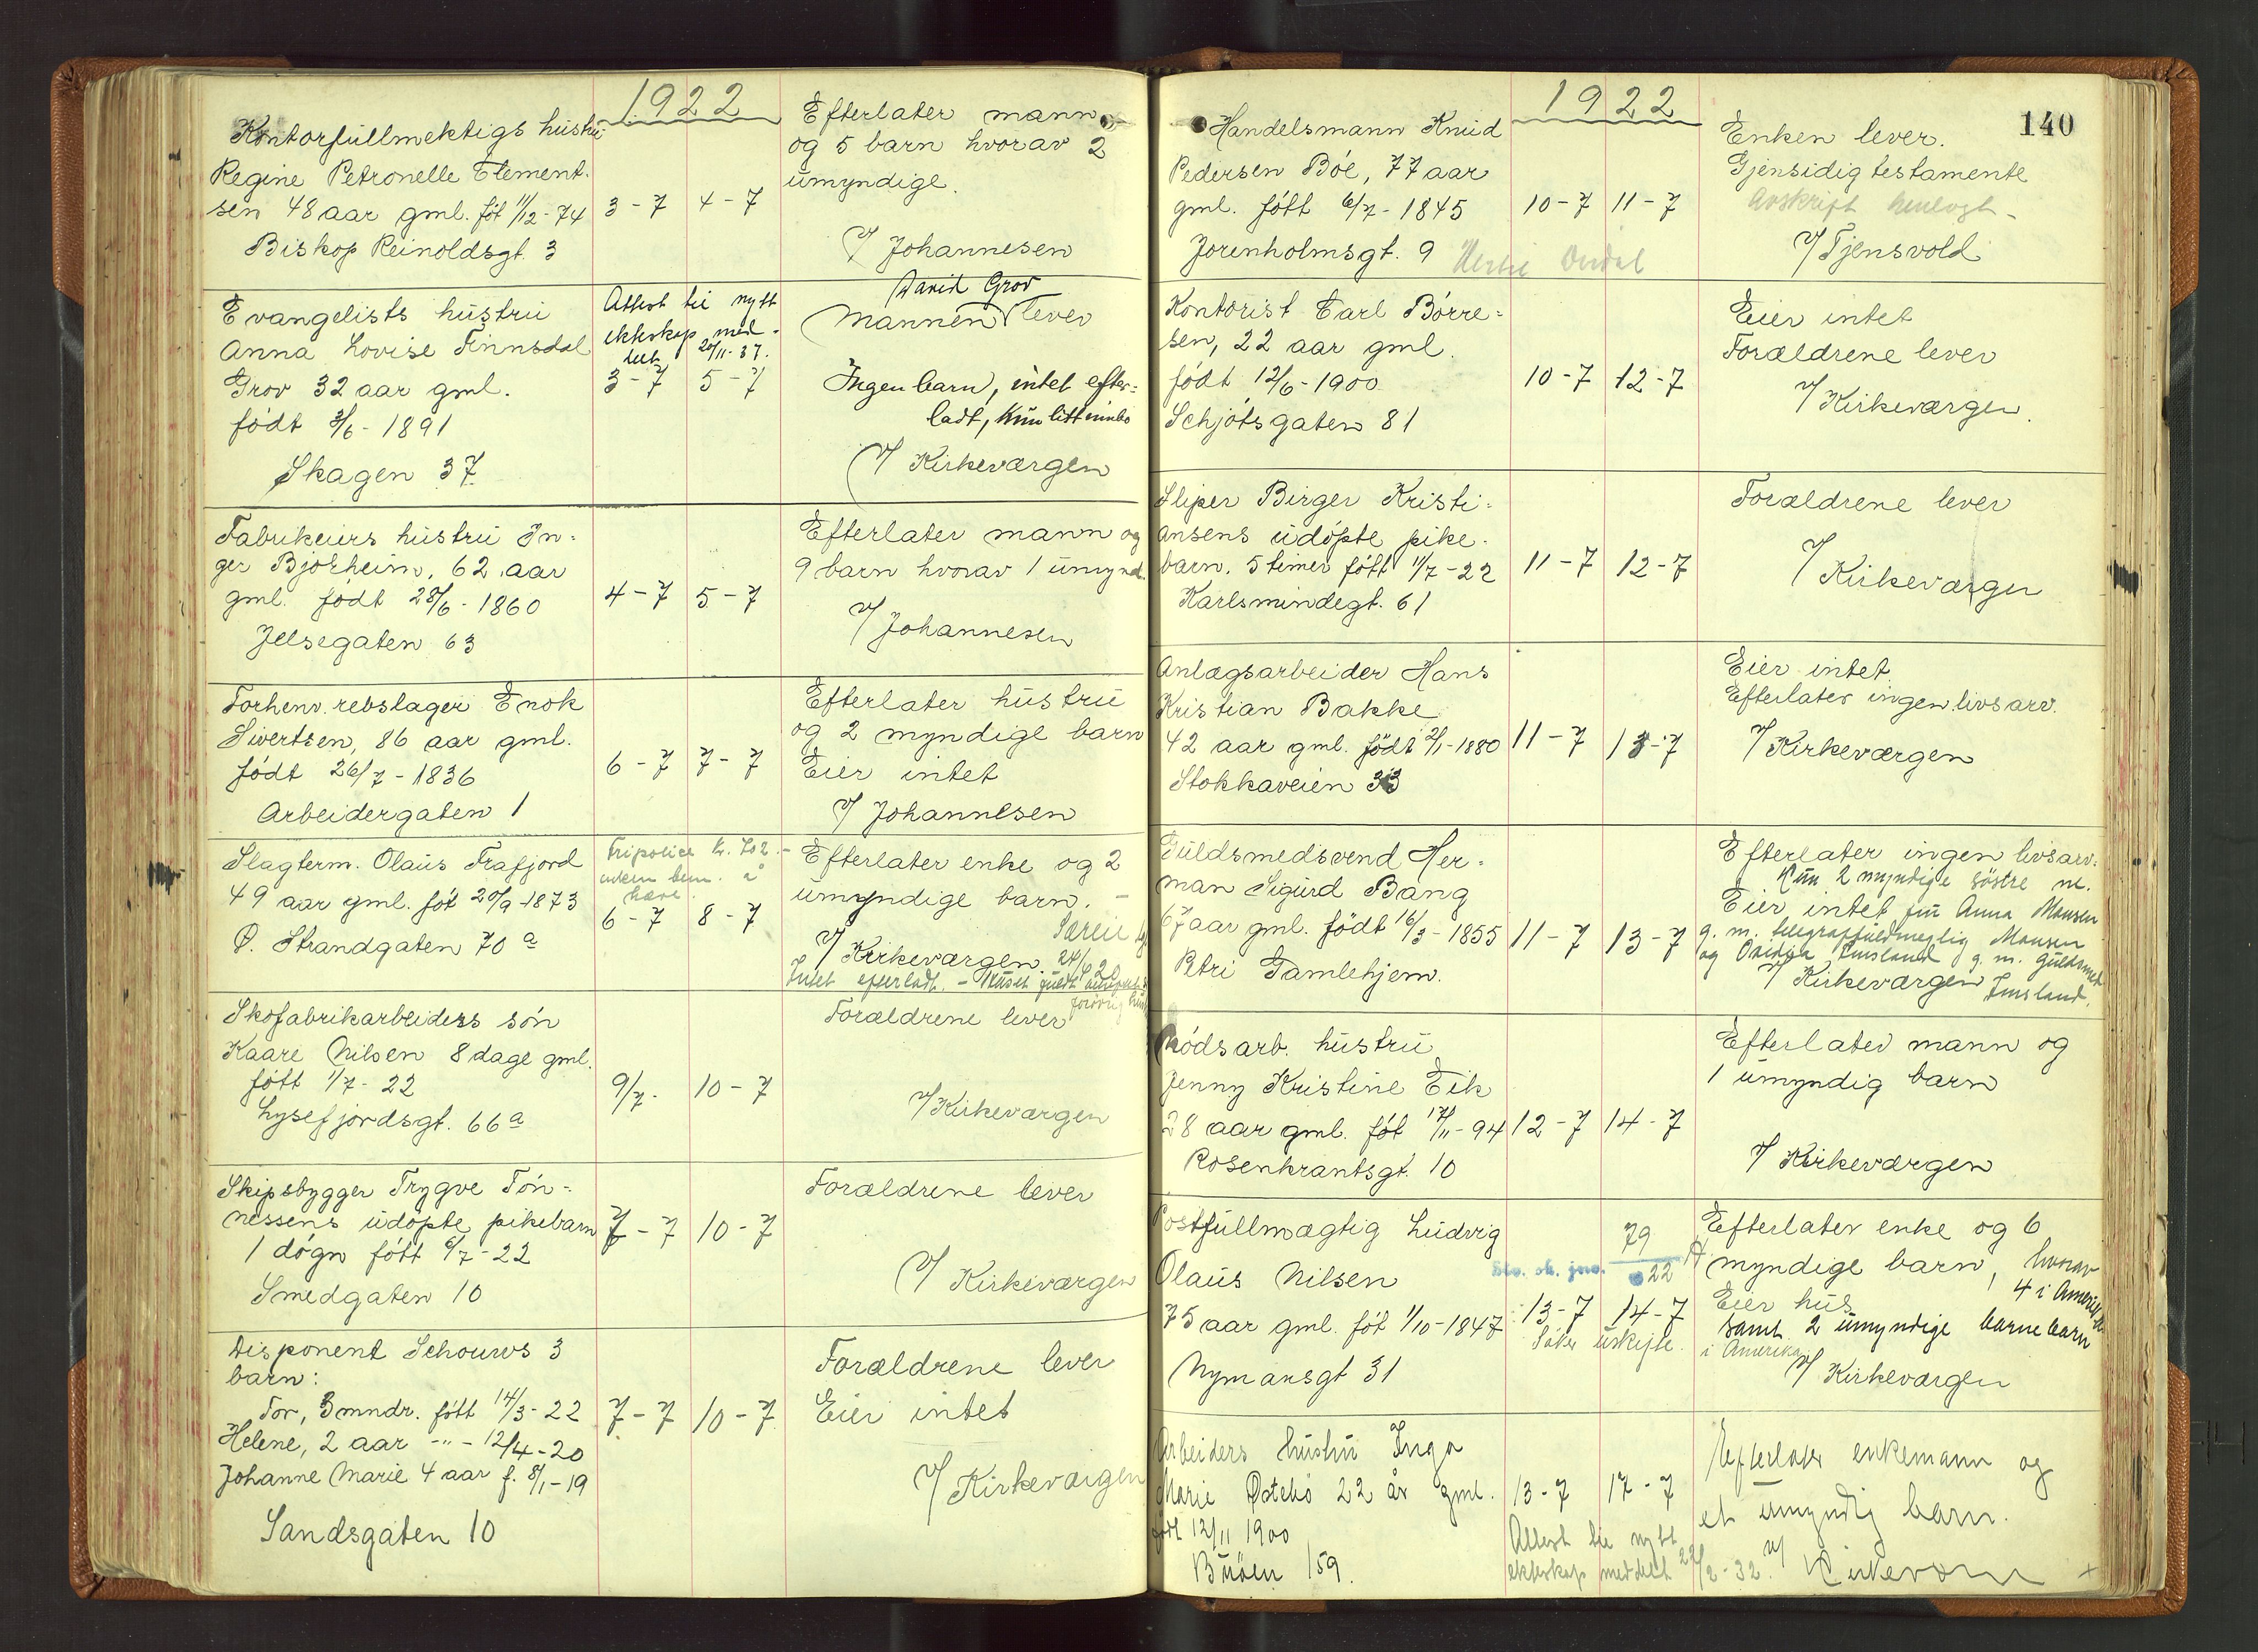 1922
Kontorfullmektigs hustru
Regine Petronelle Clement.
sen 48 aar gml. föt 11/12-74
Biskop Reinoldsgt. 3
3-7 4-7
Efterlater mann
og 5 barn hvorav 2
umyndige.
v/ Johannesen
Evangelists hustru
Anna Lovise Finnsdal
Grov 32 aar gml.
födt 3/6-1891
Skagen 37
Attest til nytt
ekteskap med-
delt 20/11-37.
3-7 5-7
David Grov
Mannen lever
Ingen barn, intet efter-
ladt, kun litt innbo
v/ Kirkeværgen
Fabrikeiers hustru In-
ger Bjorheim, 62 aar
gml. födt 28/6-1860
Jelsegaten 63
4-7 5-7
Efterlater mann og
9 barn hvorav 1 umynd.
v/ Johannesen
Forhenv. rebslager Enok
Sivertsen, 86 aar gml.
födt 26/7-1836
Arbeidergaten 1
6-7 7-7
Efterlater hustru
og 2 myndige barn
Eier intet
v/ Johannesen
Slagterm. Olaus Frafjord
49 aar gml. föt 20/9-1873
Ö. Strandgaten 70 a
Fripolice kr. 702.-
enken bem. å
have.
6-7 8-7
Efterlater enke og 2
umyndige barn. -
v/ Kirkeværgen.
Intet efterladt. - Huset fuldt
Skofabrikarbeiders sön
Kaare Nilsen 8 dage gml.
fött 1/7-22
Lysefjordsgt. 66 a
9/7. 10-7
Forældrene lever
v/ Kirkeværgen
Skipsbygger Trygve Tön-
nessens udöpte pikebarn
1 dögn fött 6/7-22
Smedgaten 10
7-7 10-7
Forældrene lever
v/ Kirkeværgen
Disponent Schouws 3
barn:
Tor, 3 mndr. fött 14/3-22
Helene, 2 aar -"- 12/4-20
Johanne Marie 4 aar f. 8/1-19
Sandsgaten 10
7-7 10-7
Forældrene lever
Eier intet
v/ Kirkeværgen
1922
140
Handelsmann Knud
Pedersen Böe, 77 aar
gml. fött 6/7-1845
Jorenholmsgt. 9
10-7 11-7
Enken lever.
Gjensidig testamente
Avskrift henlagt-
v/ Tjensvold
Kontorist Carl Börre-
sen, 22 aar gml.
födt 12/6-1900
Schjötsgaten 81
10-7 12-7
Eier intet
Forældrene lever
v/ Kirkeværgen.
Sliper Birger Kristi-
ansens udöpte pike-
barn. 5 timer fött 11/7-22
Karlsmindegt. 61
11-7 12-7
Forældrene lever
v/ Kirkeværgen
Anlægsarbeider Hans
Kristian Bakke
42 aar gml. födt 2/1-1880
Stokkaveien 33
11-7 13-7
Eier intet
Efterlater ingen livsarv.
v/ Kirkeværgen
Guldsmedsvend Her-
man Sigurd Bang
67 aar gml. födt 16/3-1855
Petri Gamlehjem.
11-7 13-7
Efterlater ingen livsarv.
Kun 2 myndige söstre nl.
Eier intet fru Anna Monsen
g. m. telegraffuldmegtig Monsen
og Imsland g. m. guldsmed
v/ Kirkeværgen Imsland.
Lödsarb. hustru
Jenny Kristine Eik
28 aar gml. föt 17/11-94
Rosenkrantsgt. 10
12-7 14-7
Efterlater mann og
1 umyndig barn
v/ Kirkeværgen
Postfullmægtig Ludvig
Olaus Nilsen
75 aar gml. föt 1/10-1847
Nymansgt 31
79
22
13-7 14-7
Söker uskifte.
Efterlater enke og 6
myndige barn, hvorav
4 i Amerika
Eier hus
samt 2 umyndige barnebarn
i Amerika
v/ Kirkeværgen
Arbeiders hustru Inga
Marie Östebö 22 år gml.
född 12/11 1900
Buöen 159.
13-7 17-7
Attest til nytt
ekteskap meddelt 22/2-32.
Efterlater enkemann og
et umyndig barn.
v/ Kirkeværgen